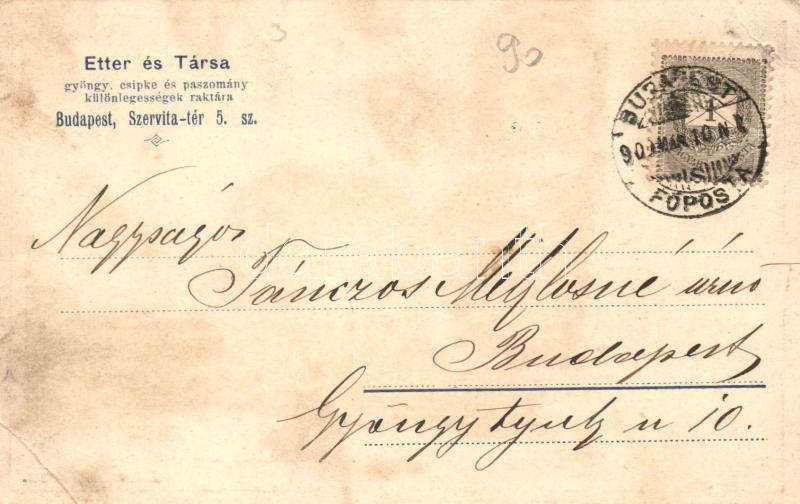 3
90
Etter és Társa
gyöngy, csipke és paszomány
különlegességek raktára
Budapest, Szervita-tér 5. sz.
BUDAPEST
900 MAR 10 N
FŐPOSTA
1
Nagyságos
Tánczos Miklósné úrnő
Budapest
Gyöngytyuk u 10.
darabanth